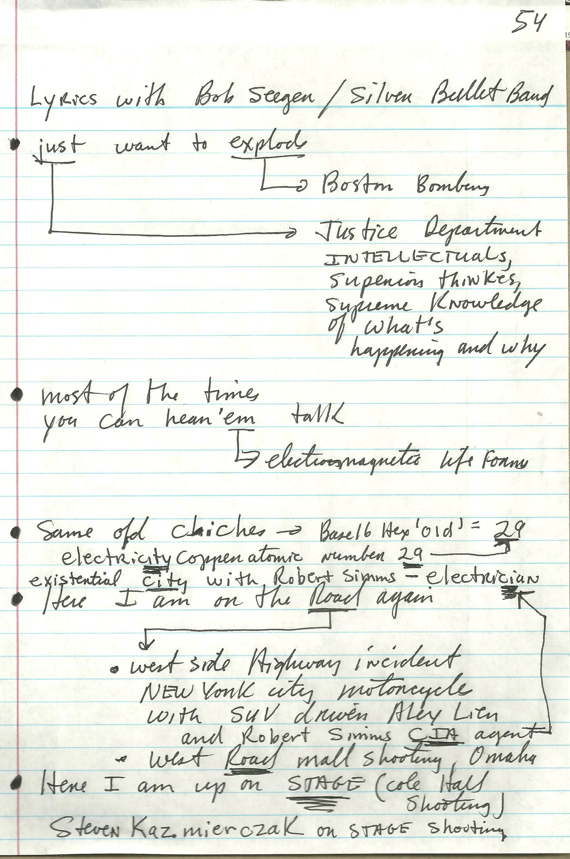 54
Lyrics with Bob Seegen / Silven Bullet Band
just want to explode
Boston Bombing
Justice Department
INTELLECTUALS,
Supenion thinkes,
Supneme Knowledge
of what's
happening and why
most of the times
you can hean 'em talk
electnomagnetic life Fonms
Same old cliches → Base16 Hex 'Old' = 29
electricity Coppen atomic number 29
existential city with Robert Simms – electrician
Here I am on the Road again
west side Highway incident
NEW YORK city motoncycle
with SUV dniven Alex Lien
and Robent Simms CIA agent
west Road mall shooting, Omaha
Here I am up on STAGE (cole Hall
Shooting)
Steven Kazmierczak on STAGE Shooting